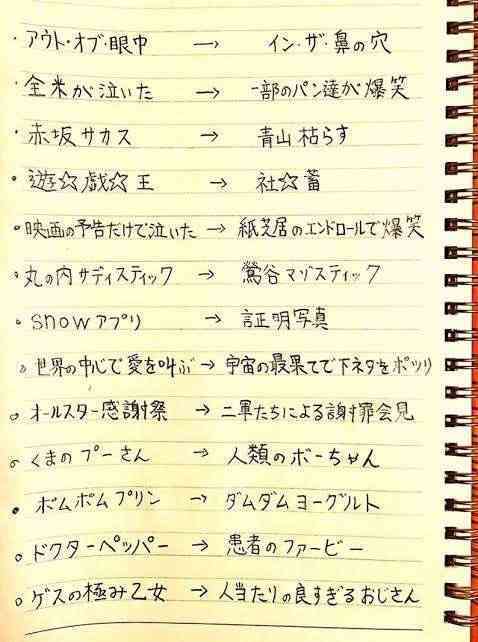 ・アウト・オブ・眼中 → イン・ザ・鼻の穴
・全米が泣いた → 一部のパン達が爆笑
・赤坂サカス → 青山枯らす
・遊☆戯☆王 → 社☆蓄
・映画の予告だけで泣いた → 紙芝居のエンドロールで爆笑
・丸の内サディスティック → 鶯谷マゾスティック
・snowアプリ → 証明写真
・世界の中心で愛を叫ぶ → 宇宙の最果てで下ネタをポツリ
・オールスター感謝祭 → 二軍たちによる謝罪会見
・くまのプーさん → 人類のボーちゃん
・ポムポムプリン → ダムダムヨーグルト
・ドクターペッパー → 患者のファービー
・ゲスの極み乙女 → 人当たりの良すぎるおじさん